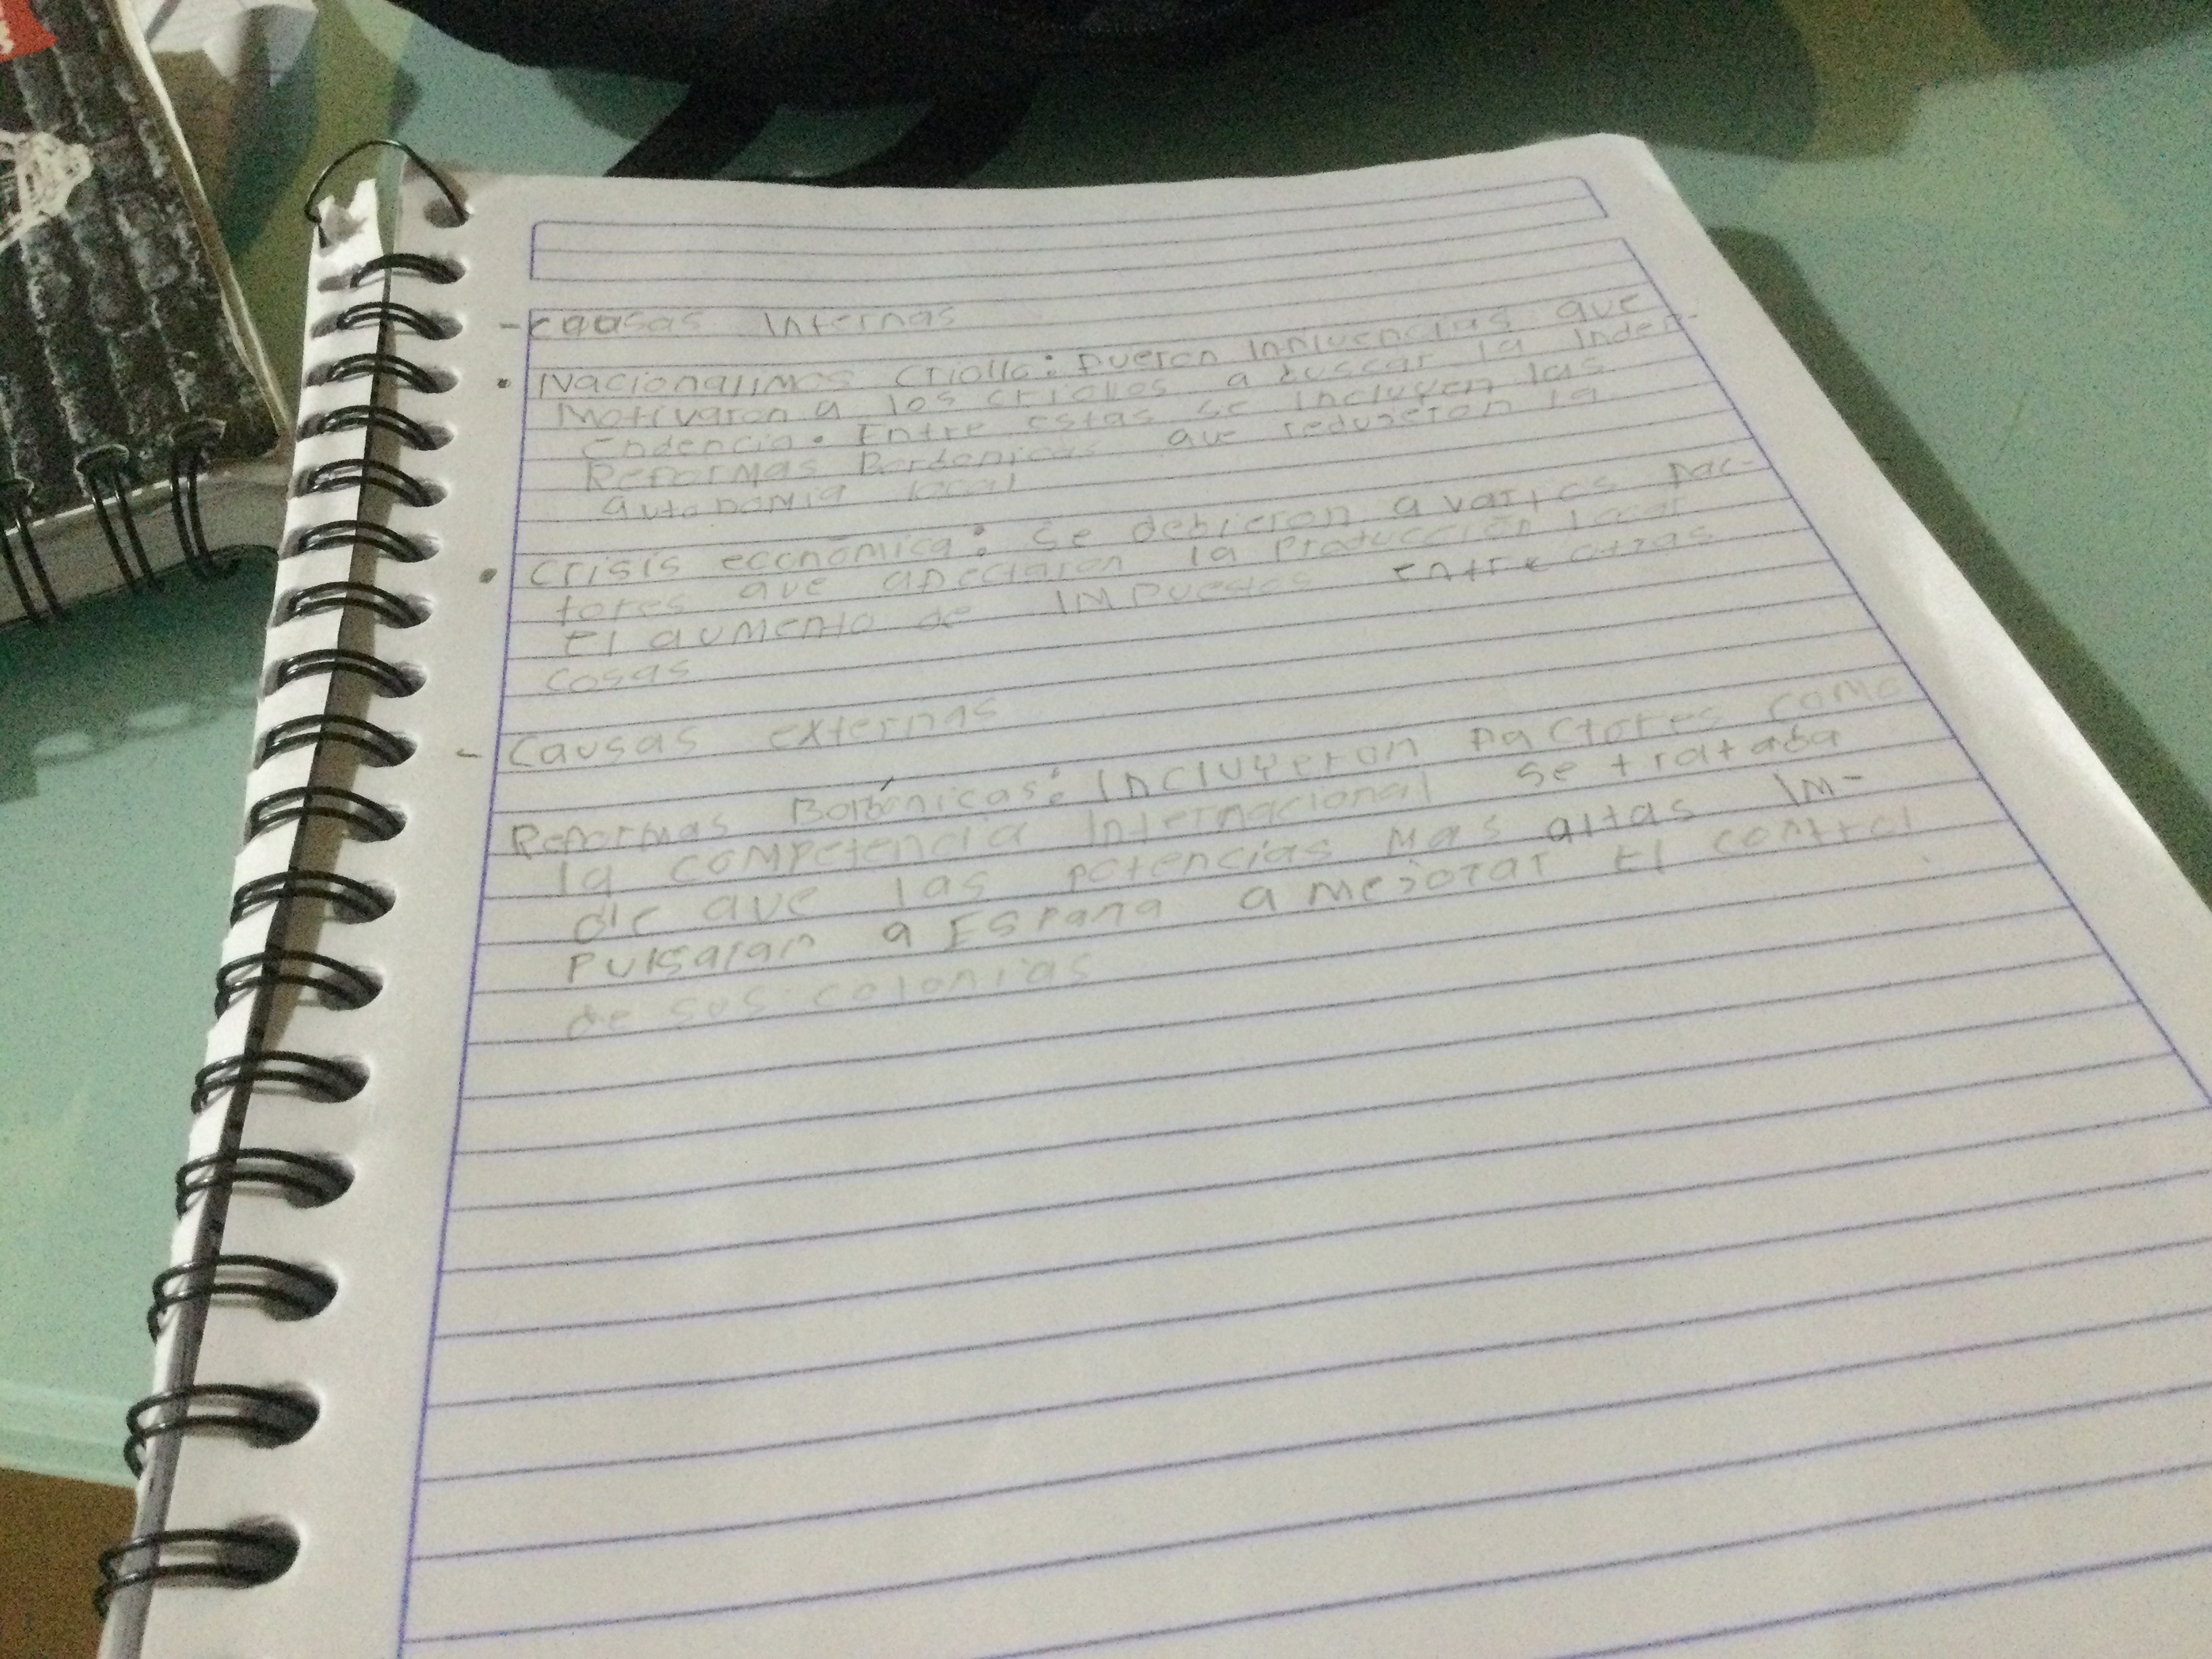 - causas Internas
• Nacionalimos criollo: fueron Influencias que
Motivaron a los criollos a buscar la Indep-
endencia. Entre estas se incluyen las
Reformas Borbonicas que reduseron la
autonomia local
• Crisis económica: Se debieron a varios fac-
tores que afectaron la Producción local
El aumento de IMPuestos entre otras
cosas
- Causas externas
Reformas Borbónicas: Incluyeron factores como
la competencia Internacional se trataba
de que las potencias mas altas Im-
Pulsaran a España a mejorar El control
de sus colonias